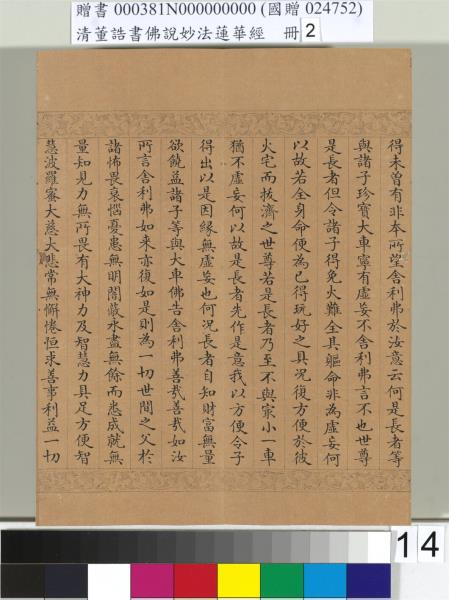 贈書 000381N000000000 (國贈 024752)
清董誥書佛說妙法蓮華經 冊 2
得未曾有非本所望舍利弗於汝意云何是長者等
與諸子珍寶大車寧有虛妄不舍利弗言不也世尊
是長者但令諸子得免火難全其軀命非為虛妄何
以故若全身命便為已得玩好之具況復方便於彼
火宅而拔濟之世尊若是長者乃至不與冣小一車
猶不虛妄何以故是長者先作是意我以方便令子
得出以是因緣無虛妄也何況長者自知財富無量
欲饒益諸子等與大車佛告舍利弗善哉善哉如汝
所言舍利弗如來亦復如是則為一切世間之父於
諸怖畏衰惱憂患無明闇蔽永盡無餘而悉成就無
量知見力無所畏有大神力及智慧力具足方便智
慧波羅蜜大慈大悲常無懈惓恒求善事利益一切
14